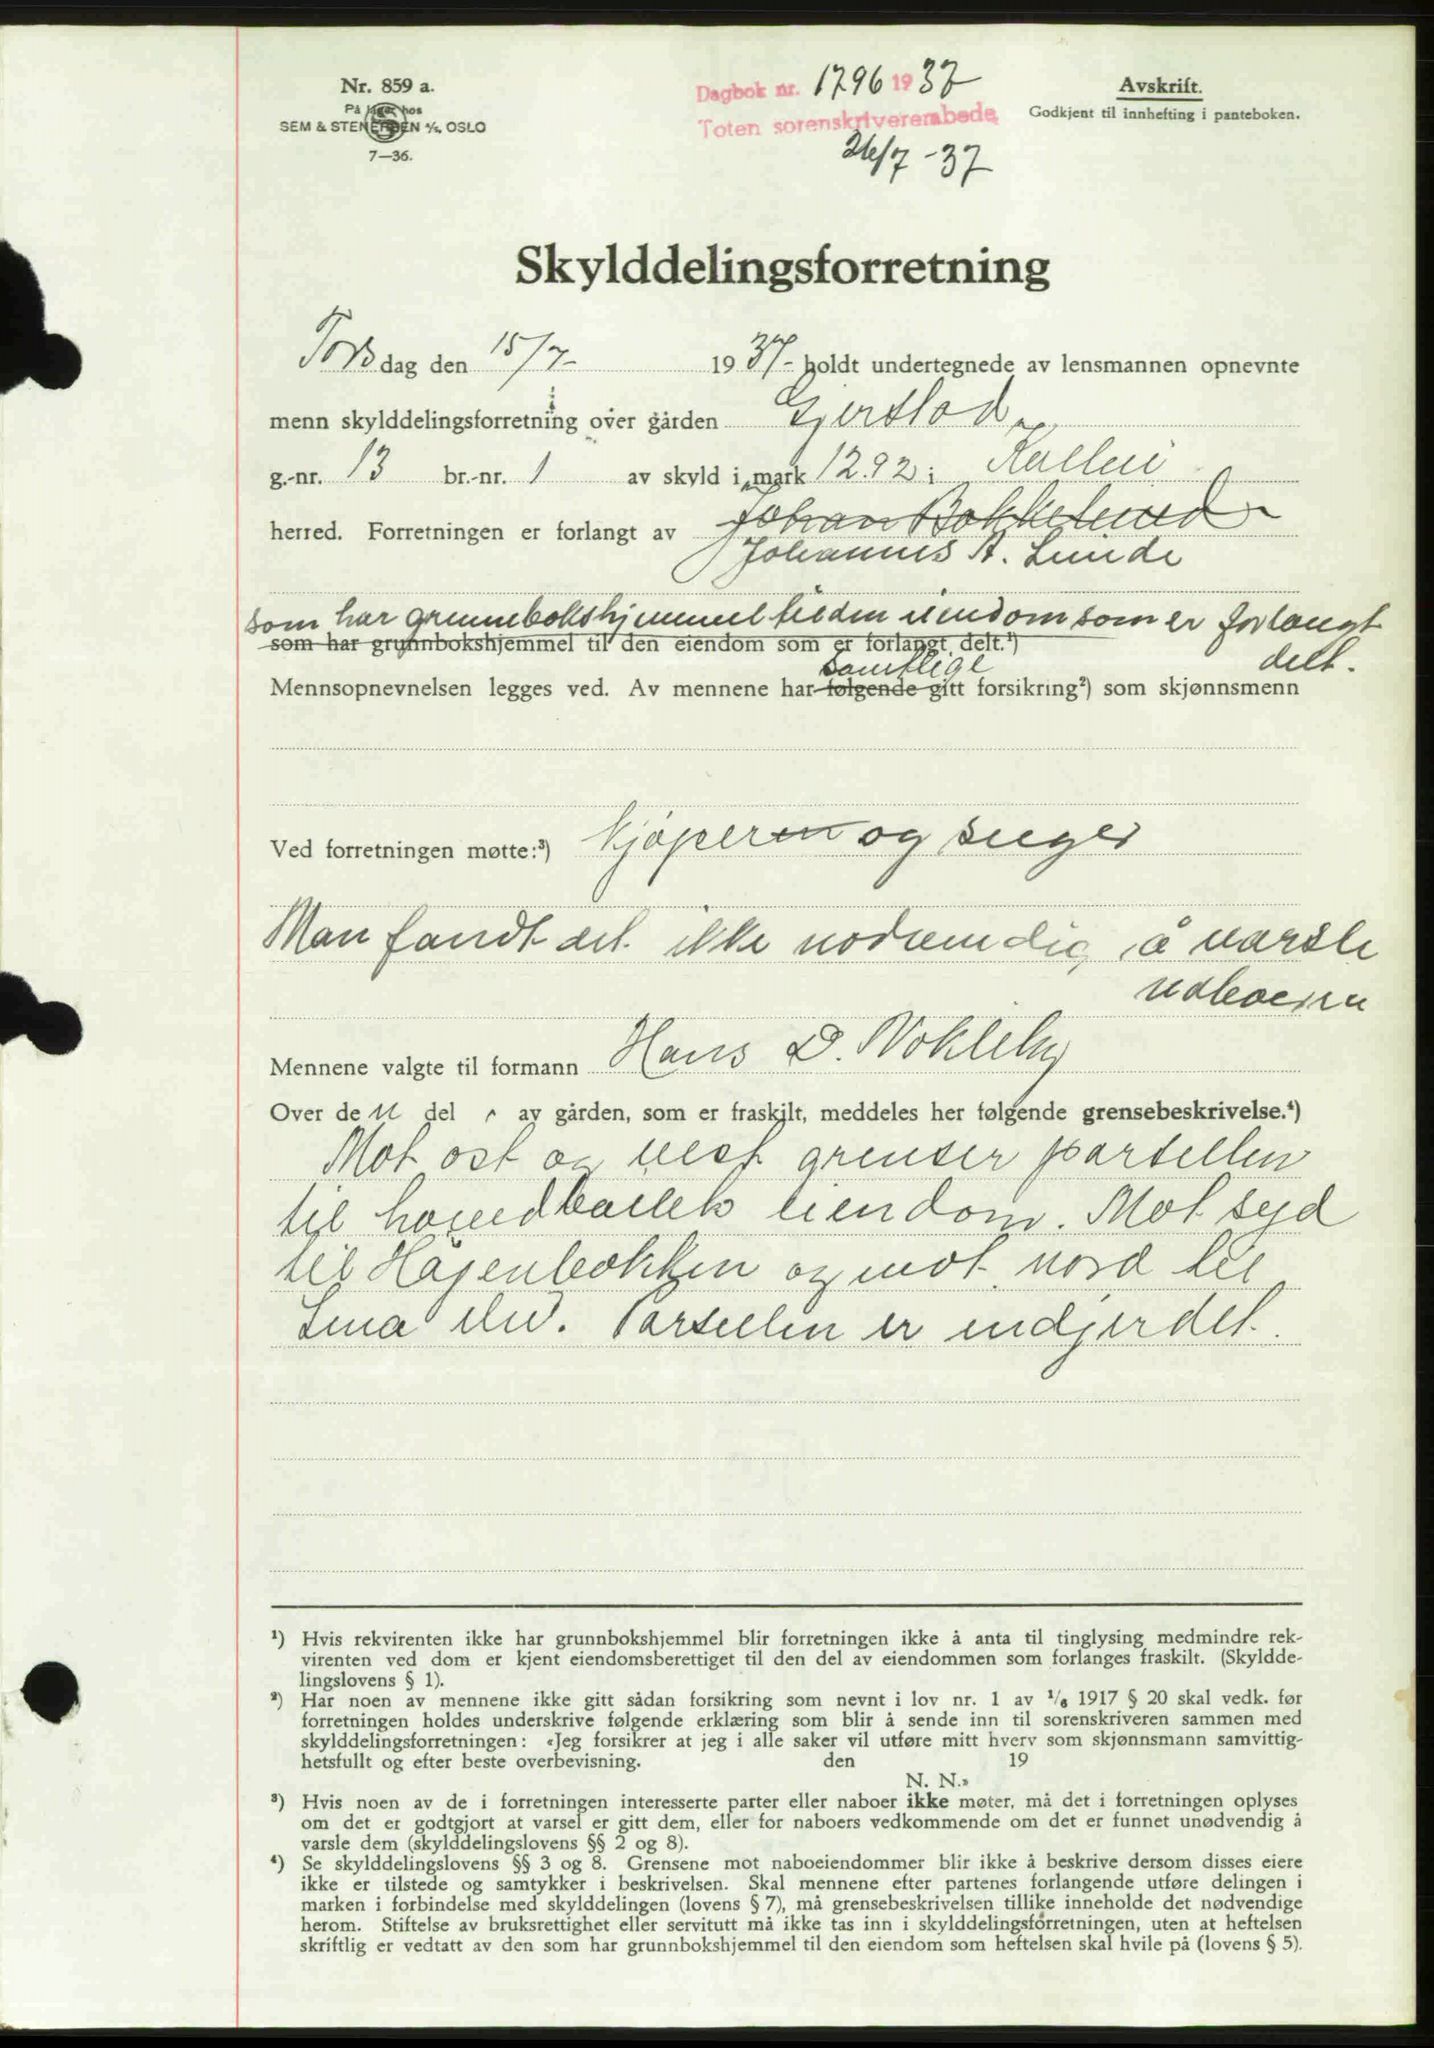 Nr. 859 a.
På lager hos
SEM & STENERSEN A/S, OSLO
7—36.
Dagbok nr. 1796 1937
Toten sorenskriverembede
26/7 - 37
Avskrift.
Godkjent til innhefting i panteboken.
Skylddelingsforretning
Tors dag den 15/7- 1937- holdt undertegnede av lensmannen opnevnte
menn skylddelingsforretning i over gården Gjerstad
g.-nr. 13 br.-nr. 1 av skyld i mark 12.92 i Kolbu
herred. Forretningen er forlangt av Johan Bakkelund
Johannes A. Lunde
som har grunnbokshjemmel til den eiendom som er forlangt
som har grunnbokshjemmel til den eiendom som er forlangt delt.¹)
delt.
samtlige
Mennsopnevnelsen legges ved. Av mennene har følgende gitt forsikring²) som skjønnsmenn
Ved forretningen møtte:³) Kjøperen og selger
Man fandt det ikke nødvendig å varsle
naboerne
Mennene valgte til formann Hans D. Nokleby
Over den del av gården, som er fraskilt, meddeles her følgende grensebeskrivelse.⁴)
Mot ost og vest grenser parsellen
til hovedbølets eiendom. Mot syd
til Høgenbakken og mot nord til
Lena elv. Parsellen er indgjerdet.
¹) Hvis rekvirenten ikke har grunnbokshjemmel blir forretningen ikke å anta til tinglysing medmindre rek-
virenten ved dom er kjent eiendomsberettiget til den del av eiendommen som forlanges fraskilt. (Skyldde-
lingslovens § 1).
²) Har noen av mennene ikke gitt sådan forsikring som nevnt i lov nr. 1 av 1/6 1917 § 20 skal vedk. før
forretningen holdes underskrive følgende erklæring som blir å sende inn til sorenskriveren sammen med
skylddelingsforretningen: «Jeg forsikrer at jeg i alle saker vil utføre mitt hverv som skjønnsmann samvittig-
hetsfullt og efter beste overbevisning. den 19
N. N.»
³) Hvis noen av de i forretningen interesserte parter eller naboer ikke møter, må det i forretningen oplyses
om det er godtgjort at varsel er gitt dem, eller for naboers vedkommende om det er funnet unødvendig å
varsle dem (skylddelingslovens §§ 2 og 8).
⁴) Se skylddelingslovens §§ 3 og 8. Grensene mot naboeiendommer blir ikke å beskrive dersom disses eiere
ikke er tilstede og samtykker i beskrivelsen. Skal mennene efter partenes forlangende utføre delingen i
marken i forbindelse med skylddelingen (lovens § 7), må grensebeskrivelsen tillike inneholde det nødvendige
herom. Stiftelse av bruksrettighet eller servitutt må ikke tas inn i skylddelingsforretningen, uten at heftelsen
skriftlig er vedtatt av den som har grunnbokshjemmel til den eiendom som heftelsen skal hvile på (lovens § 5).